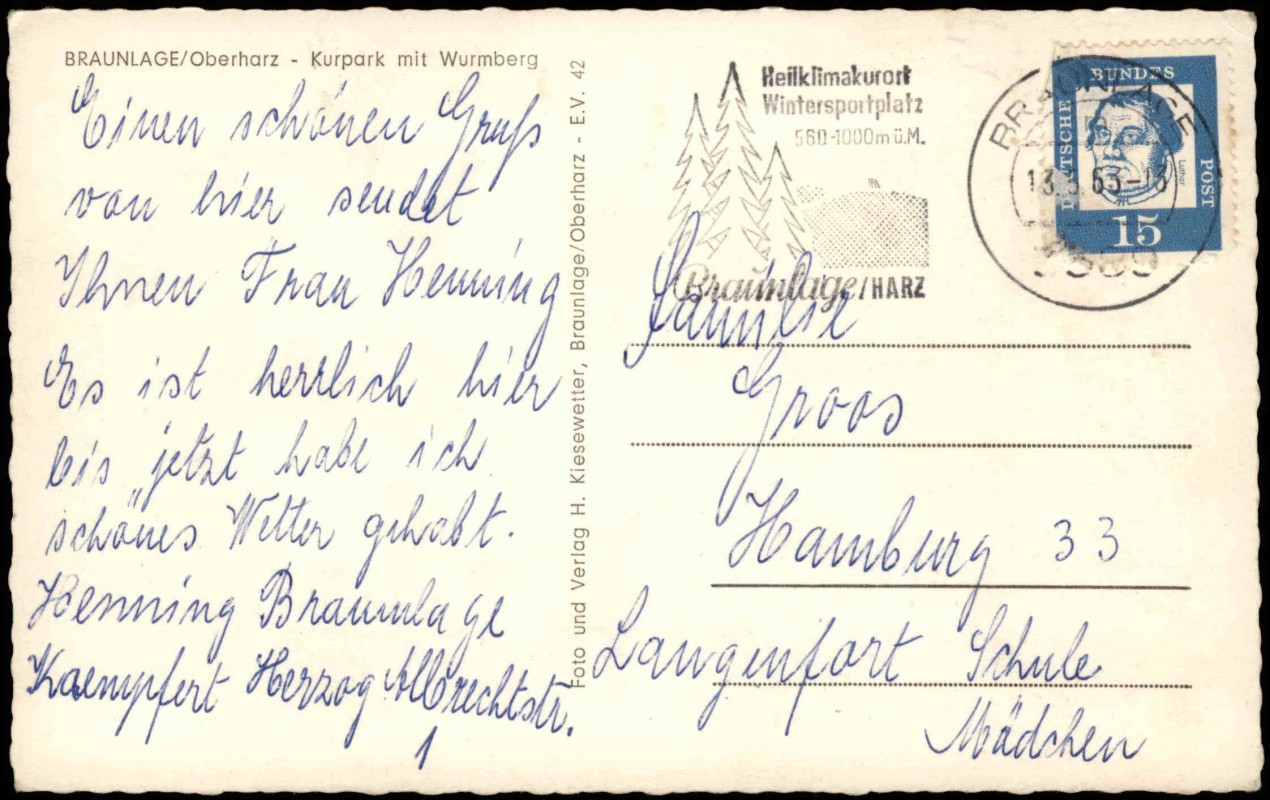 BRAUNLAGE/Oberharz - Kurpark mit Wurmberg
Einen schönen Gruß
von hier sendet
Ihnen Frau Henning
Es ist herrlich hier
bis jetzt habe ich
schönes Wetter gehabt.
Henning Braunlage
Kaempfert Herzog Albrechtstr.
1
Foto und Verlag H. Kiesewetter, Braunlage/Oberharz - E.V. 42
Heilklimakurort
Wintersportplatz
560-1000m ü.M.
Braunlage/HARZ
BRAUNLAGE
13.5.63-13
DEUTSCHE
BUNDES
POST
Luther
15
Familie
Groos
Hamburg 33
Langenfort Schule
Mädchen